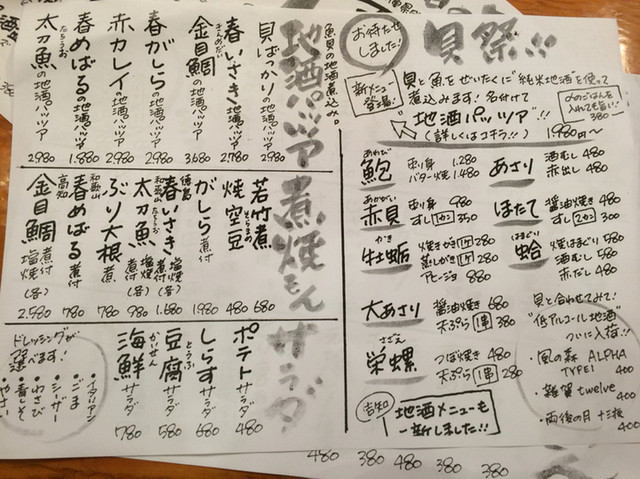 お待たせしました！
貝祭!!
新メニュー登場！
貝と魚をぜいたくに純米地酒を使って
煮込みます！名付けて
"地酒パッツァ"!!
(詳しくはコチラ!!)
1980円〜
〆のごはんを入れても旨い！
380-
鮑 あわび
造り身 1.280
バター焼 1.480
あさり
酒むし 480
赤出し 480
赤貝 あかがい
造り身 980
すし 1カン 350
ほたて
醤油焼き 480
すし 2カン 300
牡蛎 かき
焼きがき 1ケ 280
蒸しがき 1ケ 280
アヒージョ 880
蛤 はまぐり
焼はまぐり 580
酒むし 580
赤だし 480
大あさり
醤油焼き 680
天ぷら 1串 380
栄螺 さざえ
つぼ焼き 480
天ぷら 1串 280
貝と合わせてみて！
"低アルコール地酒"
ついに入荷!!
・風の森 ALPHA TYPE1 400
・雑賀 twelve 400
・雨後の月 十三夜 400
告知
地酒メニューも
一新しました!!
地酒パッツァ
魚貝の地酒煮込み。
貝ばっかりの地酒パッツァ 2980
春いさきの地酒パッツァ 2780
金目鯛の地酒パッツァ 3680
きんめだい
春がしらの地酒パッツァ 2980
赤カレイの地酒パッツァ 2980
春めばるの地酒パッツァ 1.880
太刀魚の地酒パッツァ 2980
たちうお
煮焼もん
若竹煮 680
焼空豆 480
そらまめ
がしら 煮付 1980
徳島 春いさき 塩焼 煮付(各) 1.680
和歌山 太刀魚 煮付 塩焼(各) 980
たちうお
ぶり大根 煮 780
和歌山 春めばる 煮付 780
高知 金目鯛 煮付 塩焼(各) 2.580
サラダ
ポテトサラダ 480
しらすサラダ 680
豆腐サラダ 580
とうふ
海鮮サラダ 780
かいせん
ドレッシングが
選べます！
・イタリアン
・ごま
・シーザー
・わさび
・青しそ
480 380 480 380 380